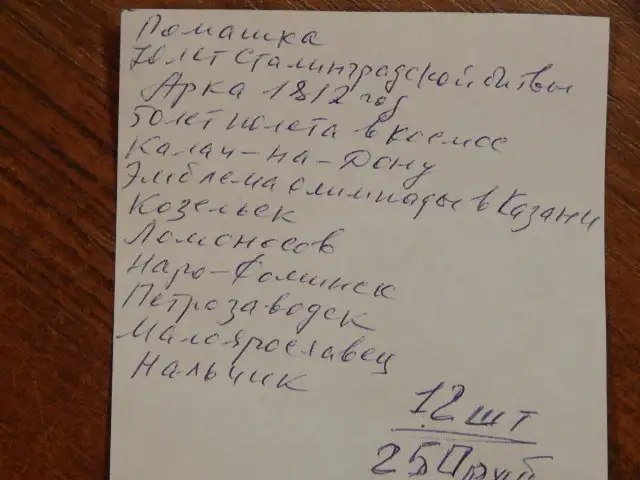 Ромашка
70 лет Сталинградской битвы
Арка 1812 год
50 лет полета в космос
Калач-на-Дону
Эмблема олимпиады в Казани
Козельск
Ломоносов
Наро-Фоминск
Петрозаводск
Малоярославец
Нальчик
12 шт
250 руб